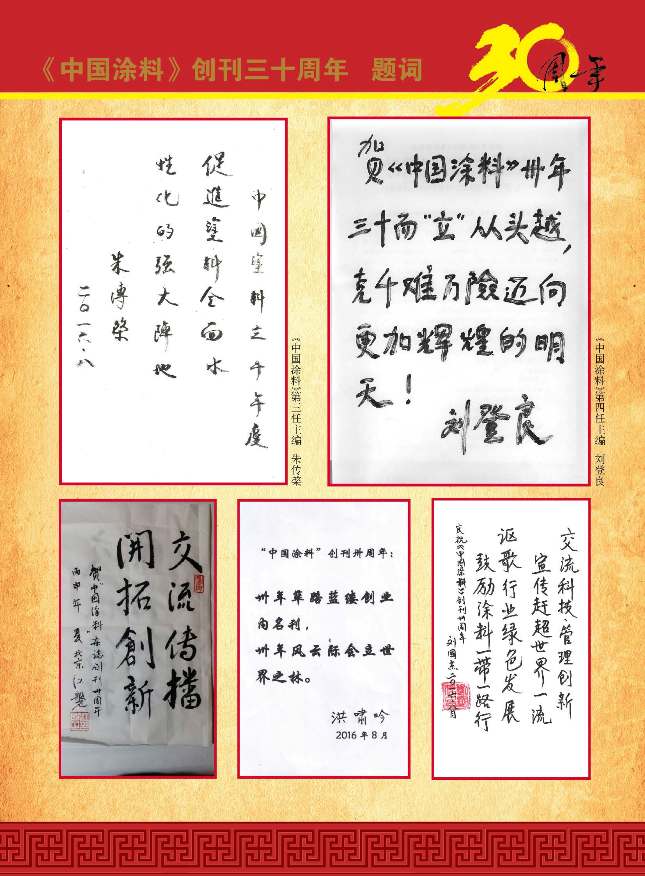 《中国涂料》创刊三十周年 题词
30周年
中国塗料三十年慶
促進塗料全面水
性化的强大陣地
朱傳榮
二〇一六.八
《中国涂料》第三任主编 朱传荣
贺《中国涂料》卅年
三十而“立”从头越,
克千难万險迈向
更加辉煌的明
天!
刘登良
《中国涂料》第四任主编 刘登良
交流传播
開拓創新
賀中国涂料杂誌創刊卅周年
丙申年 夏 北京
“中国涂料”创刊卅周年:
卅年筚路蓝缕创业
内名刊,
卅年风云际会立世
界之林。
洪啸吟
2016年8月
交流科技管理创新
宣传赶超世界一流
讴歌行业绿色发展
鼓励涂料一带一路行
庆祝《中国涂料》创刊卅周年
刘國杰 二〇一六八月